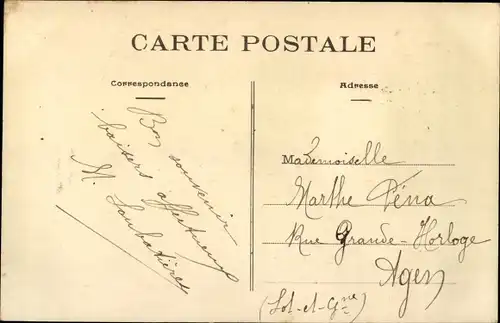 CARTE POSTALE
Correspondance
Bon souvenir
baisers affectueux
M. Lambatière
Adresse
Mademoiselle
Marthe Péna
Rue Grande-Horloge
Agen
(Lot-et-Gne)